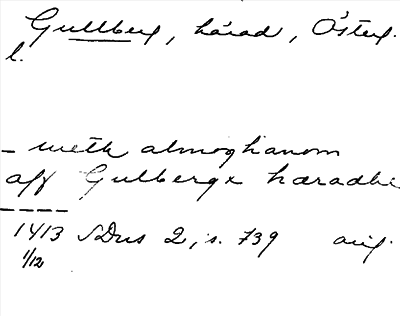 Gullberg, härad, Österg.
l.
– meth almoghanom
aff Gulbergx hæradhe
– – – –
1413 SDns 2, s. 739 orig.
1/12